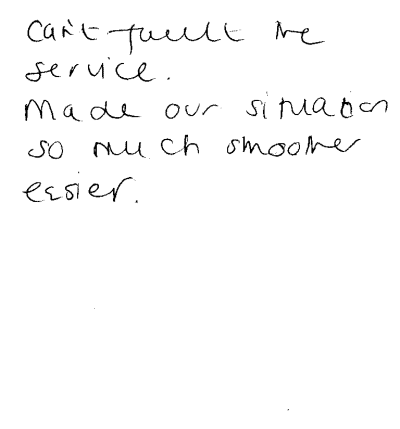 Can't fault the
service.
Made our situation
so much smoother
easier.